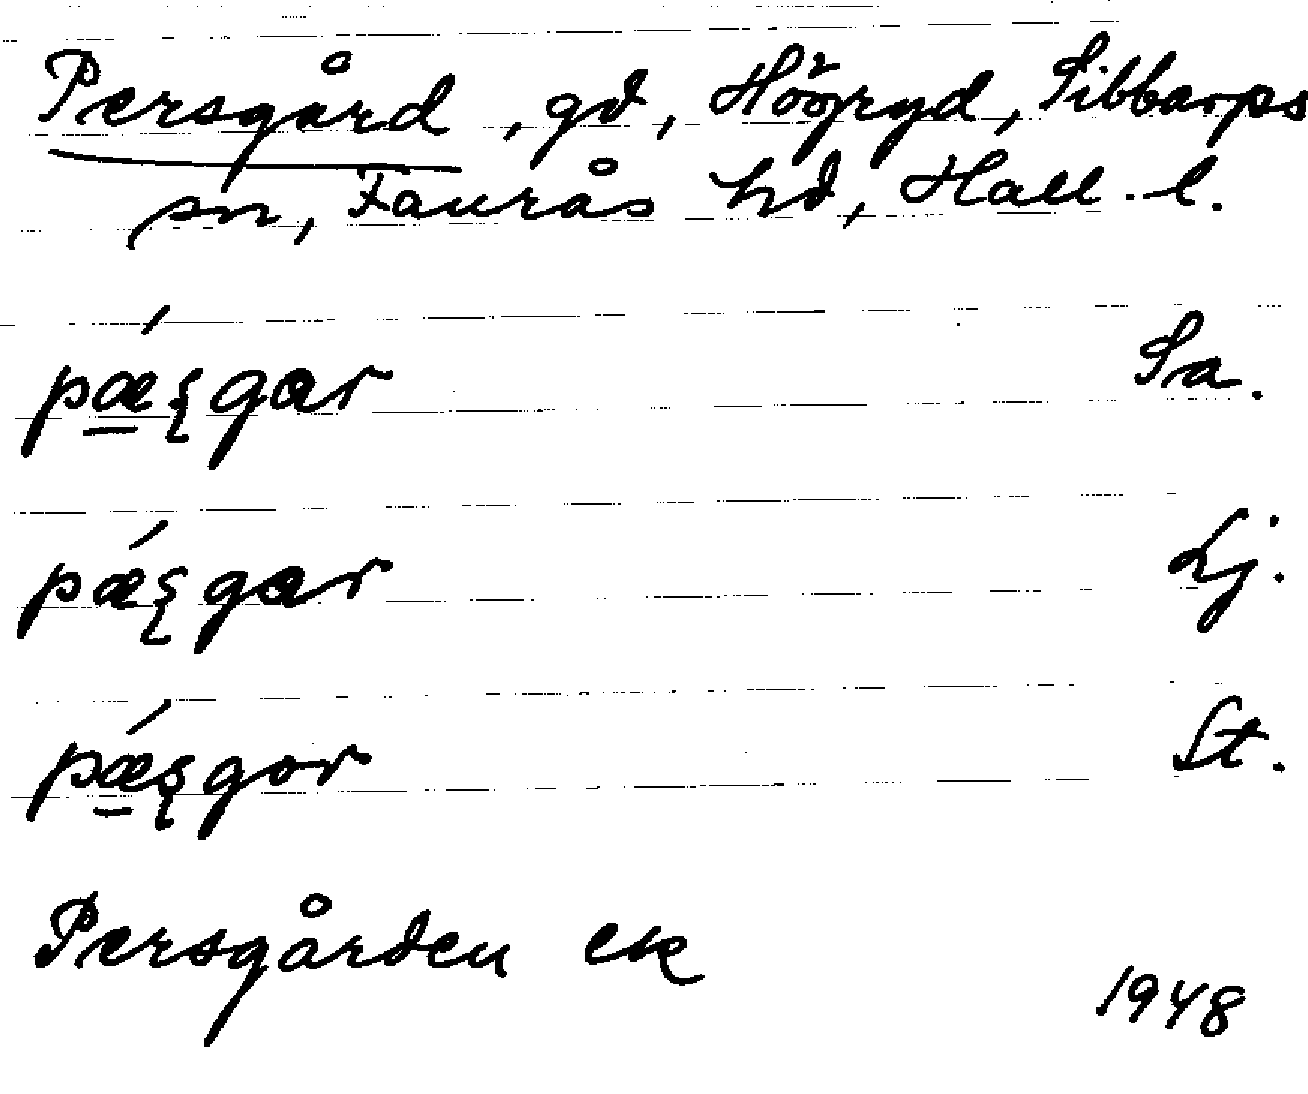 Persgård, gd, Högryd, Sibbarps
sn, Faurås hd, Hall. l.
pǽʂgar Sa.
pǽʂgar Lj.
pǽʂgor St.
Persgården ek
1948